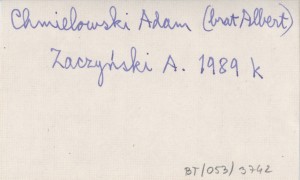 Chmielowski Adam (brat Albert)
Zaczyński A. 1989 k
BT/053/3742